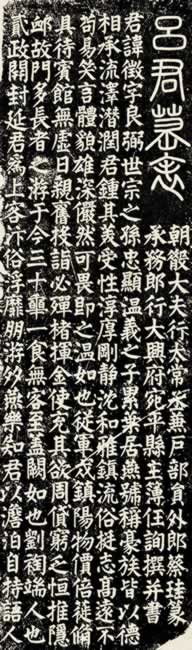 呂君墓表
朝散大夫行太常丞兼戶部員外郎蔡珪篆
承務郎行大興府宛平縣主簿任詢撰并書
君諱徵字良弼世宗之孫忠顯溫義之子累葉居燕號稱豪族皆以德
相承流澤潛潤君鍾其美受性淳厚剛靜沈和雅鎮流俗挺志高遠不
苟易笑言體貌雄深儼然可畏即之溫如也從軍戍鎮陽物價倍徙備
具待賓館無虛日親舊投詣必彈楮揮金使充其欲周貸窮乏恒推隱
卹故門多長者之游于今三十載一食無客至蓋闕如也劉徇端人也
貳政開封延君為上客汴俗浮靡朋游以燕樂知君以澹泊自持語人